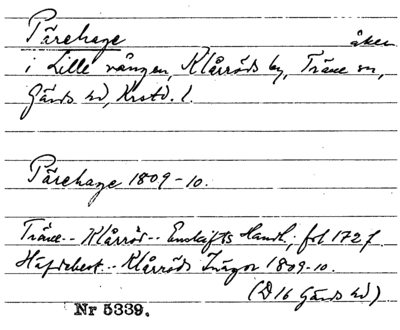 Pärehage åker
i Lille vången, Klårröds by, Träne sn,
Gärds hd, Krstd. l.
Pärehage 1809-10.
Träne -- Klårröd -- Enskifts Handl., fol 172 f
Hafdebest -- Klårröds Inägor 1809-10.
(D 16 Gärds hd)
Nr 5339.